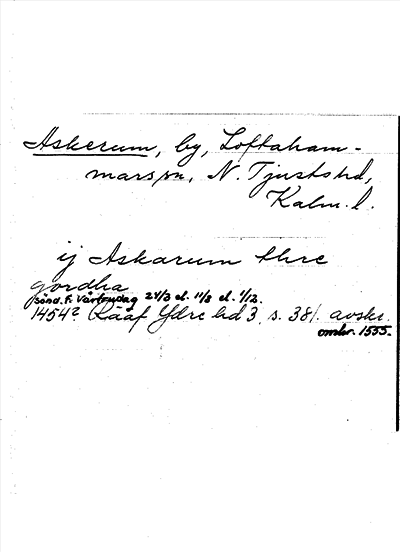 Askerum, by, Loftaham-
marssn, N. Tjusts hd,
Kalm. l.
ij Askarum thre
gordha
sönd. f. Vårfrudag 24/3 el. 11/8 el. 1/12.
1454? Rääf Ydre hd 3, s. 381. avskr.
omkr. 1555.